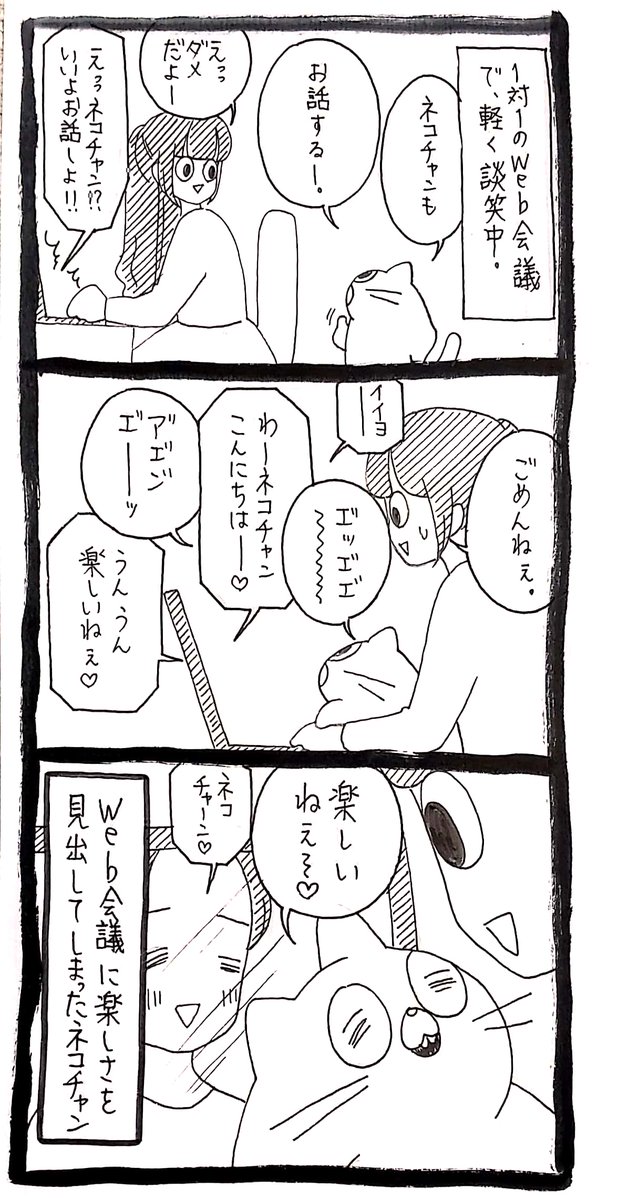 1対1のWeb会議
で、軽く談笑中。
ネコチャンも
お話するー。
えっ
ダメ
だよー
えっネコチャン!?
いいよお話しよ!!
ごめんねぇ。
イイヨ
ー
エッエエ〜〜〜〜
わーネコチャン
こんにちはー♡
アエン
エーッ
うんうん
楽しいねぇ♡
楽しい
ねぇ〜♡
ネコ
チャーン♡
Web会議に楽しさを
見出してしまったネコチャン